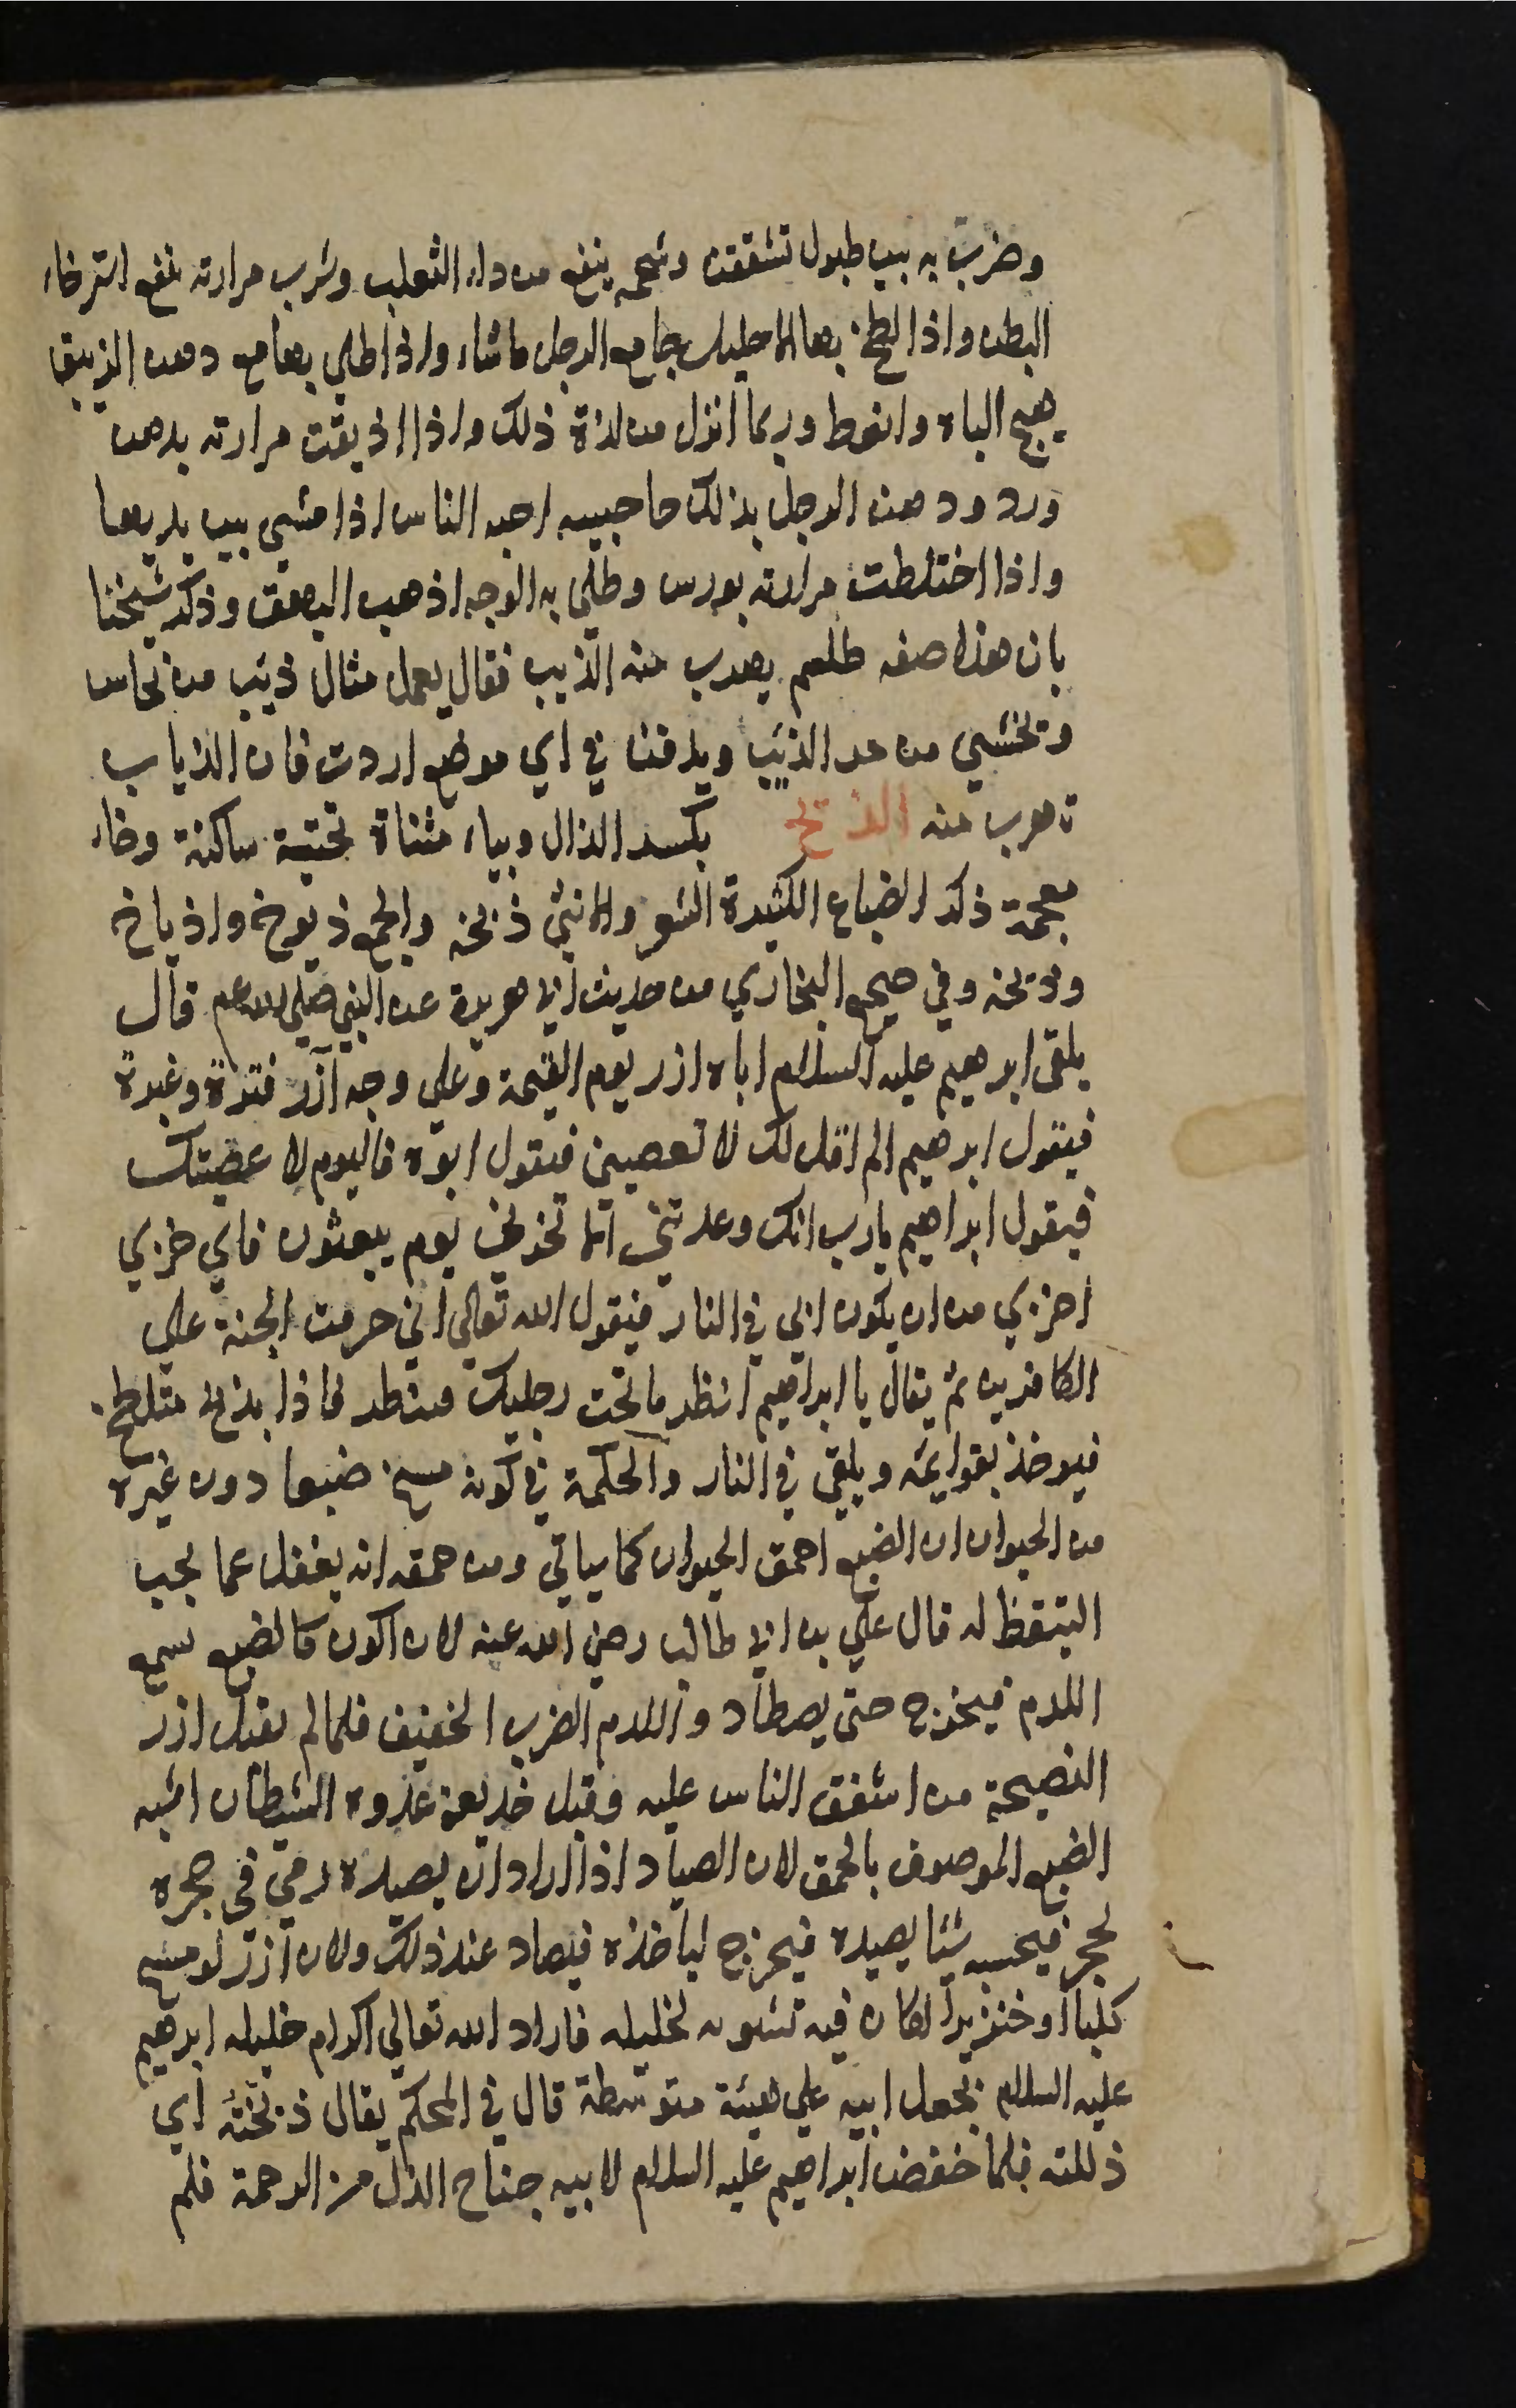 وضرب به بين طبول تشققت وشحمه ينفع من داء الثعلب وشرب مرارته ينفع استرخاء
البطن واذا لطخ بها الاحليل جامع الرجل ما شاء واذا طلي بها مع دهن الزيبق
هيج الباه وانعظ وربما انزل من لذة ذلك واذا اذيفت مرارته بدهن
ورد ودهن الرجل بذلك حاجبيه احبه الناس اذا مشي بين يديها
واذا اختلطت مرارته بورس وطلي به الوجه اذهب البهق وذكر شيخنا
بان هذه صفه طلسم يهرب منه الذيب فقال يعمل مثال ذيب من نحاس
وتخشي من الذئب ويدفن في اي موضع اردت فان الذياب
تهرب منه الذيخ بكسر الذال وبياء مثناة تحتية ساكنة وخاء
معجمة ذكر الضباع الكثيرة الشعر والانثي ذيخه والجمع ذيوخ واذياخ
وذيخه وفي صحيح البخاري من حديث ابي هريرة عن النبي صلى الله عم قال
يلقى ابرهيم عليه السلام اباه ازر يوم القيمة وعلي وجه آزر قترة وغبرة
فيقول ابرهيم الم اقل لك لا تعصيني فيقول ابوه فاليوم لا عصيتك
فيقول ابراهيم يا رب انك وعدتني الا تخزني يوم يبعثون فاي خزي
اخزي من ان يكون ابي في النار فيقول الله تعالي اني حرمت الجنة علي
الكافرين ثم يقال يا ابراهيم انظر ما تحت رجليك فينظر فاذا بذيخ متلطخ
فيوخذ بقوايمه ويلقي في النار والحكمة في كونه مسخ ضبعا دون غيره
من الحيوان ان الضبع احمق الحيوان كما سياتي ومن حمقه انه يغفل عما يجب
التيقظ له قال علي بن ابي طالب رضي الله عنه لا اكون كالضبع تسمع
اللدم فيخرج حتى يصطاد واللدم الضرب الخفيف فلما لم يقبل ازر
النصيحة من اشفق الناس عليه وقبل خديعة عدوه الشيطان اشبه
الضبع الموصوف بالحمق لان الصياد اذا اراد ان يصيده رمي في حجره
بحجر فيحسبه شيا يصيده فيخرج لياخذه فيصاد عند ذلك ولان آزر لو مسخ
كلبا او خنزيرا لكان فيه تشويه لخليله فاراد الله تعالي اكرام خليله ابرهيم
عليه السلام بجعل ابيه علي هيئة متوسطة قال في المحكم يقال ذيخته اي
ذللته فلما خفض ابراهيم عليه السلام لابيه جناح الذل من الرحمة فلم